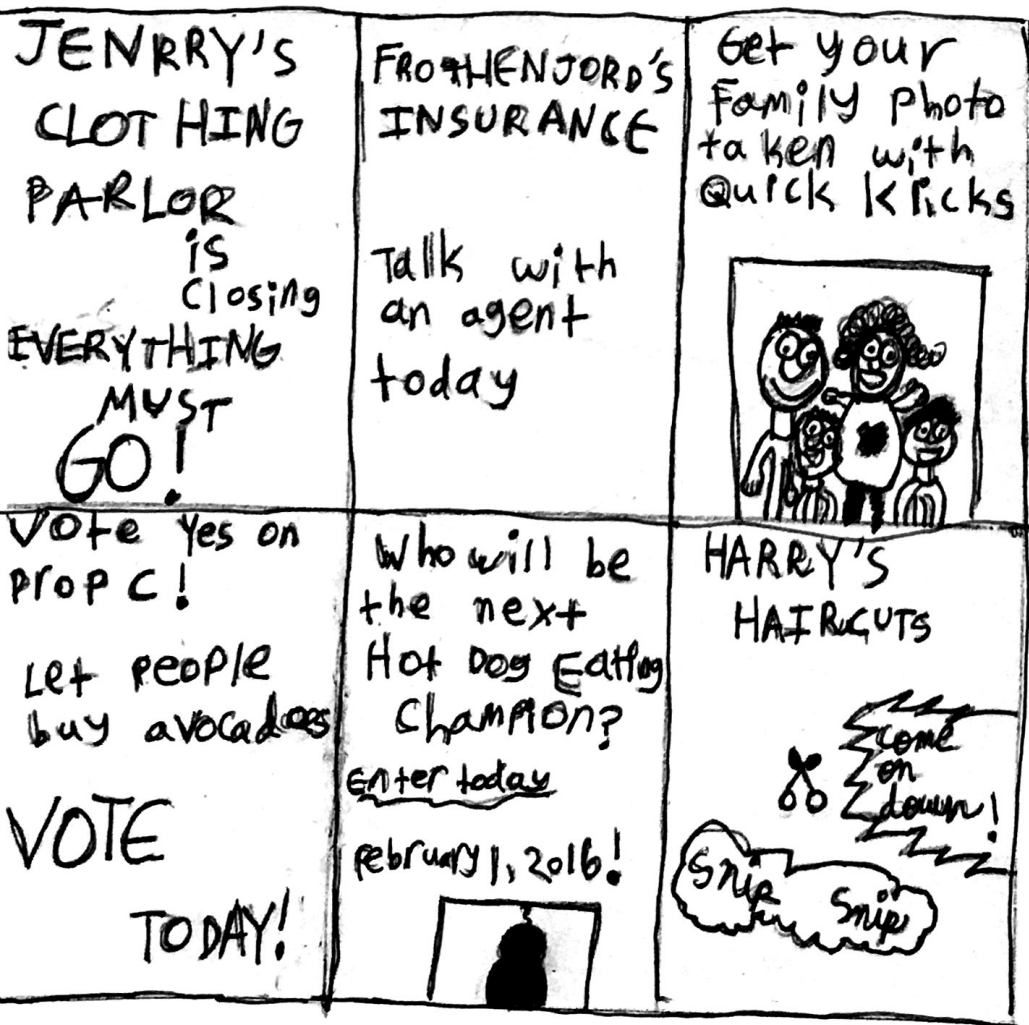 JENRRY'S
CLOTHING
PARLOR
is
Closing
EVERYTHING
MUST
GO!
FROTHENJORD'S
INSURANCE
Talk with
an agent
today
Get your
Family Photo
taken with
Quick Klicks
Vote Yes on
Prop C!
Let People
buy avocadoes
VOTE
TODAY!
Who will be
the next
Hot Dog Eating
Champion?
Enter today
February 1, 2016!
HARRY'S
HAIRCUTS
come
on
down!
Snip
Snip